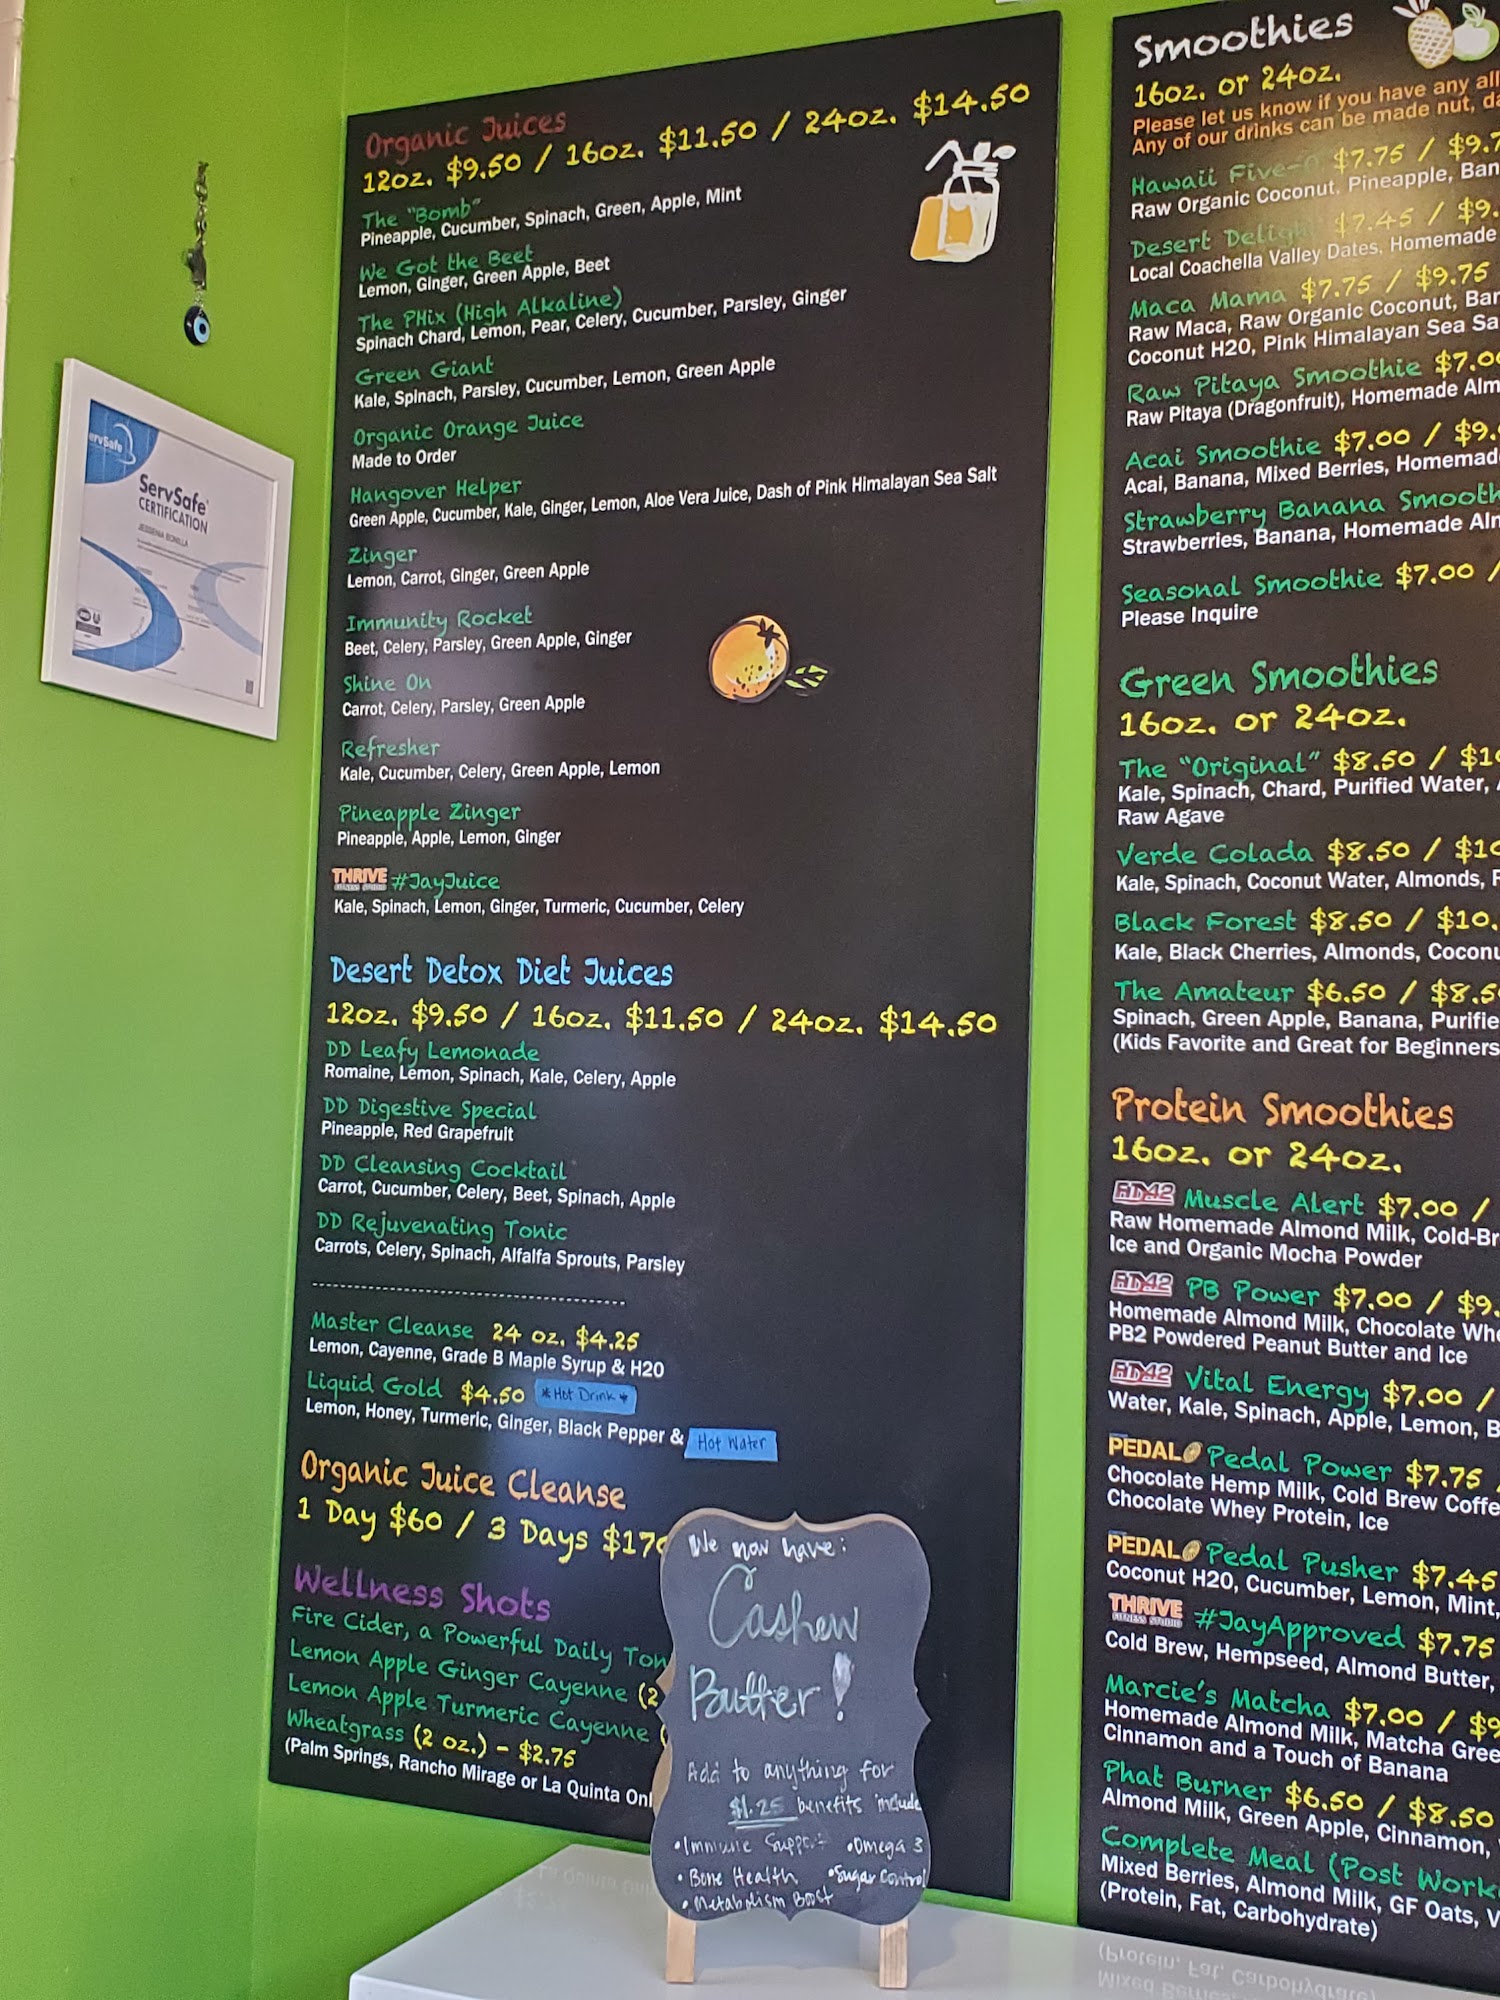 Organic Juices
12oz. $9.50 / 16oz. $11.50 / 24oz. $14.50
The "Bomb"
Pineapple, Cucumber, Spinach, Green, Apple, Mint
We Got the Beet
Lemon, Ginger, Green Apple, Beet
The PHix (High Alkaline)
Spinach Chard, Lemon, Pear, Celery, Cucumber, Parsley, Ginger
Green Giant
Kale, Spinach, Parsley, Cucumber, Lemon, Green Apple
Organic Orange Juice
Made to Order
Hangover Helper
Green Apple, Cucumber, Kale, Ginger, Lemon, Aloe Vera Juice, Dash of Pink Himalayan Sea Salt
Zinger
Lemon, Carrot, Ginger, Green Apple
Immunity Rocket
Beet, Celery, Parsley, Green Apple, Ginger
Shine On
Carrot, Celery, Parsley, Green Apple
Refresher
Kale, Cucumber, Celery, Green Apple, Lemon
Pineapple Zinger
Pineapple, Apple, Lemon, Ginger
THRIVE #JayJuice
FITNESS STUDIO
Kale, Spinach, Lemon, Ginger, Turmeric, Cucumber, Celery
Desert Detox Diet Juices
12oz. $9.50 / 16oz. $11.50 / 24oz. $14.50
DD Leafy Lemonade
Romaine, Lemon, Spinach, Kale, Celery, Apple
DD Digestive Special
Pineapple, Red Grapefruit
DD Cleansing Cocktail
Carrot, Cucumber, Celery, Beet, Spinach, Apple
DD Rejuvenating Tonic
Carrots, Celery, Spinach, Alfalfa Sprouts, Parsley
Master Cleanse 24 oz. $4.25
Lemon, Cayenne, Grade B Maple Syrup & H20
Liquid Gold $4.50 *Hot Drink*
Lemon, Honey, Turmeric, Ginger, Black Pepper & Hot Water
Organic Juice Cleanse
1 Day $60 / 3 Days $17
Wellness Shots
Fire Cider, a Powerful Daily Ton
Lemon Apple Ginger Cayenne (2
Lemon Apple Turmeric Cayenne (
Wheatgrass (2 oz.) - $2.75
(Palm Springs, Rancho Mirage or La Quinta Onl
We now have:
Cashew
Butter!
Add to anything for
$1.25 benefits include
•Immune Support •Omega 3
•Bone Health •Sugar Control
•Metabolism Boost
Smoothies
16oz. or 24oz.
Please let us know if you have any all
Any of our drinks can be made nut, da
Hawaii Five- $7.75 / $9.7
Raw Organic Coconut, Pineapple, Ban
Desert Delight $7.45 / $9.
Local Coachella Valley Dates, Homemade
Maca Mama $7.75 / $9.75
Raw Maca, Raw Organic Coconut, Ban
Coconut H20, Pink Himalayan Sea Sa
Raw Pitaya Smoothie $7.00
Raw Pitaya (Dragonfruit), Homemade Alm
Acai Smoothie $7.00 / $9.
Acai, Banana, Mixed Berries, Homemad
Strawberry Banana Smooth
Strawberries, Banana, Homemade Alm
Seasonal Smoothie $7.00 /
Please Inquire
Green Smoothies
16oz. or 24oz.
The "Original" $8.50 / $10
Kale, Spinach, Chard, Purified Water,
Raw Agave
Verde Colada $8.50 / $10
Kale, Spinach, Coconut Water, Almonds,
Black Forest $8.50 / $10.
Kale, Black Cherries, Almonds, Coconu
The Amateur $6.50 / $8.50
Spinach, Green Apple, Banana, Purifie
(Kids Favorite and Great for Beginners
Protein Smoothies
16oz. or 24oz.
Muscle Alert $7.00 /
Raw Homemade Almond Milk, Cold-Br
Ice and Organic Mocha Powder
PB Power $7.00 / $9.
Homemade Almond Milk, Chocolate Whe
PB2 Powdered Peanut Butter and Ice
Vital Energy $7.00 /
Water, Kale, Spinach, Apple, Lemon, B
PEDAL Pedal Power $7.75
Chocolate Hemp Milk, Cold Brew Coffe
Chocolate Whey Protein, Ice
PEDAL Pedal Pusher $7.45
Coconut H20, Cucumber, Lemon, Mint,
THRIVE #JayApproved $7.75
FITNESS STUDIO
Cold Brew, Hempseed, Almond Butter,
Marcie's Matcha $7.00 / $9
Homemade Almond Milk, Matcha Gree
Cinnamon and a Touch of Banana
Phat Burner $6.50 / $8.50
Almond Milk, Green Apple, Cinnamon,
Complete Meal (Post Work
Mixed Berries, Almond Milk, GF Oats, V
(Protein, Fat, Carbohydrate)
ServSafe
ServSafe
CERTIFICATION
JESSENIA BONILLA